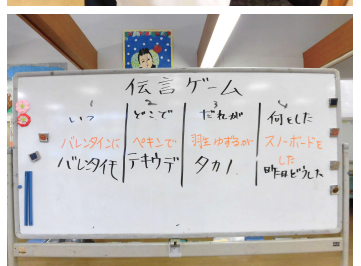 伝言ゲーム
1 2 3 4
いつ どこで だれが 何をした
バレンタインに ペキンで 羽生ゆずるが スノーボードをした
バレンタイモ テキウデ タカノ 昨日どうした